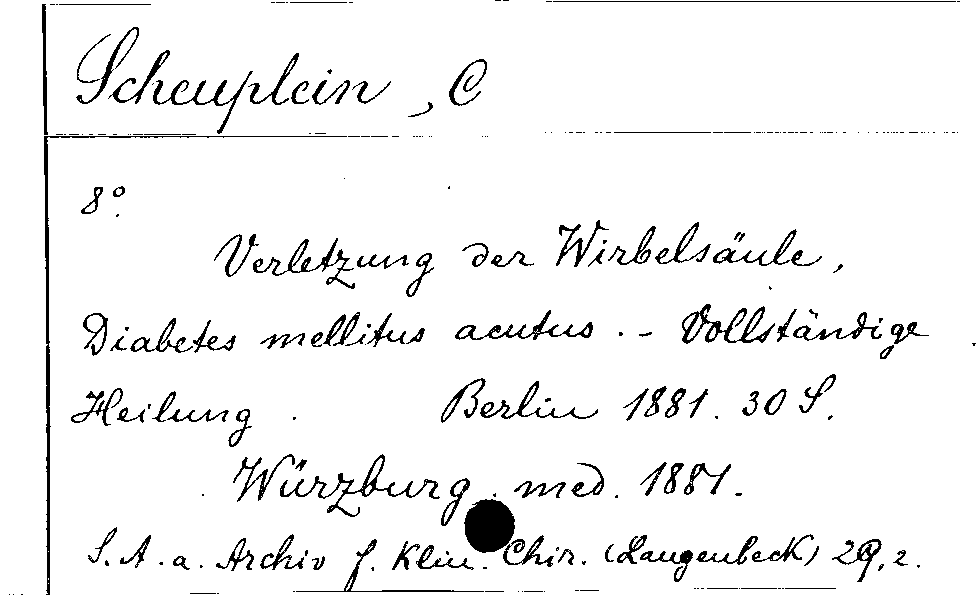 Scheuplein, C
8°.
Verletzung der Wirbelsäule,
Diabetes mellitus acutus. - Vollständige
Heilung. Berlin 1881. 30 S.
Würzburg. med. 1881.
S. A. a. Archiv f. Klin. Chir. (Langenbeck) 29, 2.